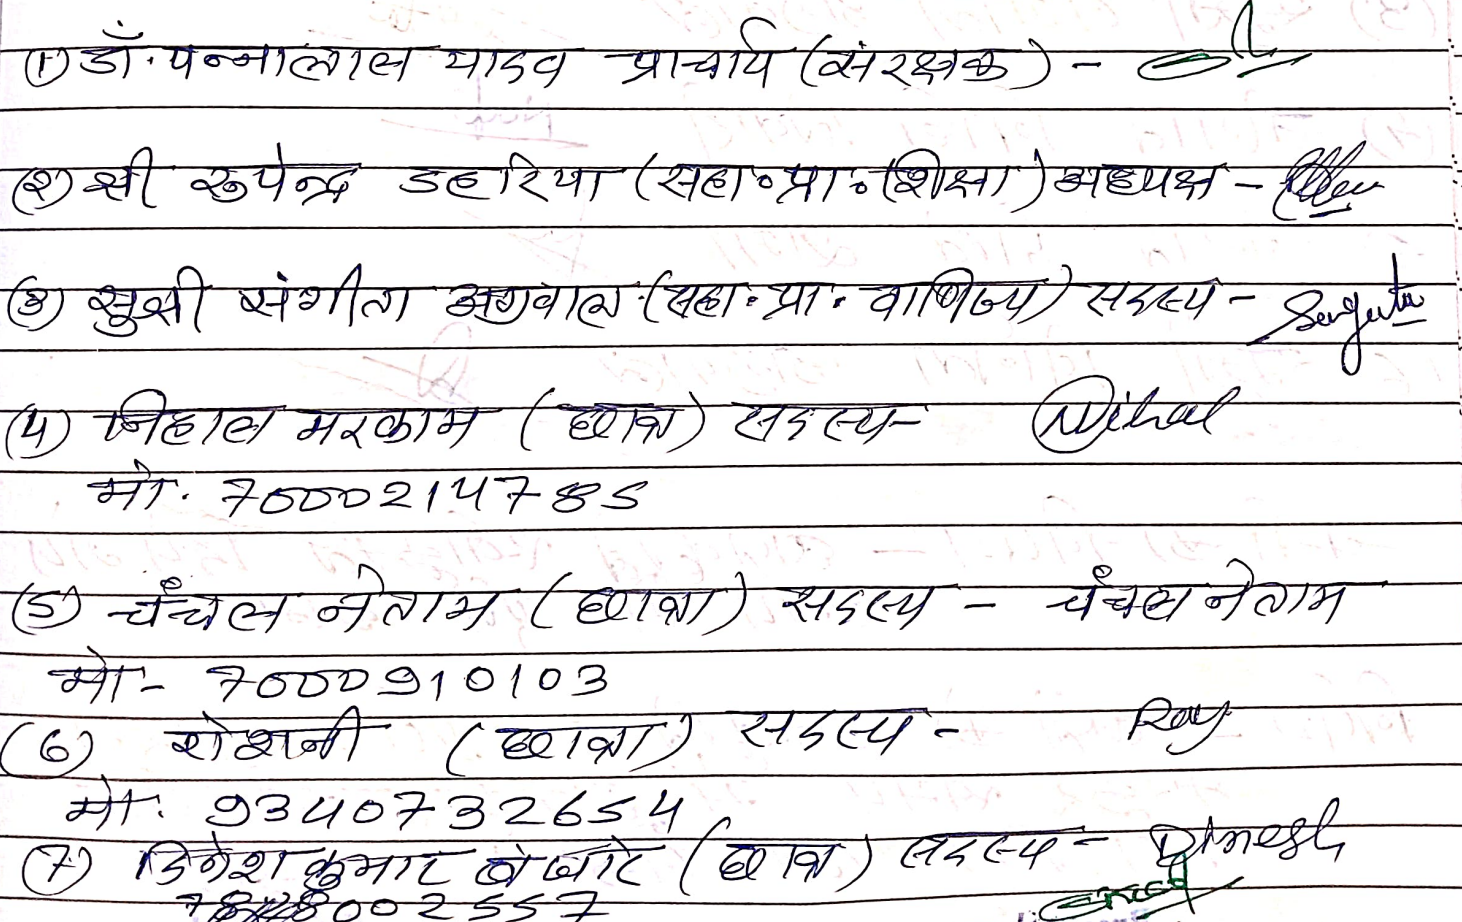 (1) डॉ. पन्नालाल यादव प्राचार्य (संरक्षक) -
(२) श्री रुपेन्द्र डहरिया (सहा॰ प्रा॰ (शिक्षा) अध्यक्ष -
(3) सुश्री संगीता अग्रवाल (सहा. प्रा. वाणिज्य) सदस्य - Sangeeta
(4) निहाल मरकाम (छात्र) सदस्य- Nihal
मो. 70002147785
(5) चंचल नेताम (छात्रा) सदस्य - चंचल नेताम
मो- 7000910103
(6) रोशनी (छात्रा) सदस्य - Roy
मो. 9340732654
(7) दिनेश कुमार (छात्र) सदस्य - Dinesh